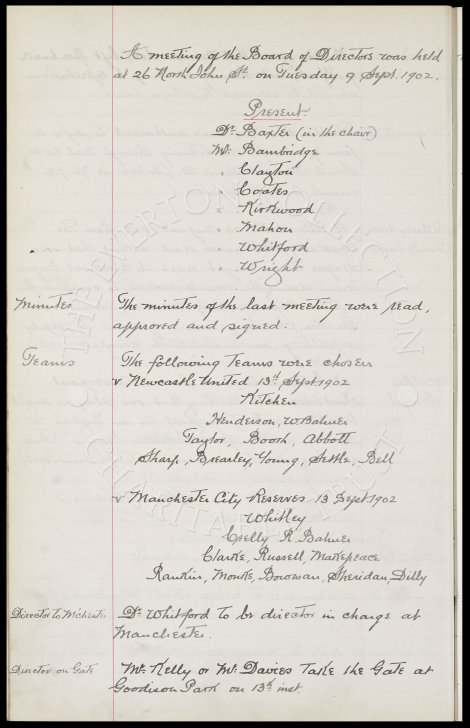 A meeting of the Board of Directors was held
at 26 North John St. on Tuesday 9 Sept. 1902.
Present.
Dr. Baxter (in the chair)
Mr. Bainbridge
" Clayton
" Coates
" Kirkwood
" Mahon
" Whitford
" Wright
Minutes
The minutes of the last meeting were read,
approved and signed.
Teams
The following Teams were chosen
v Newcastle United 13th Sept 1902
Kitchen
Henderson, W Balmer
Taylor, Booth, Abbott
Sharp, Brearley, Young, Settle, Bell
v Manchester City Reserves 13 Sept 1902
Whitley
Crelly R. Balmer
Clarke, Russell, Makepeace
Rankin, Monks, Bowman, Sheridan, Dilly
Director to M'chester
Dr. Whitford to be director in charge at
Manchester.
Director on Gate
Mr. Kelly or Mr. Davies Take the Gate at
Goodison Park on 13th inst.
THE EVERTON COLLECTION
CHARITABLE TRUST